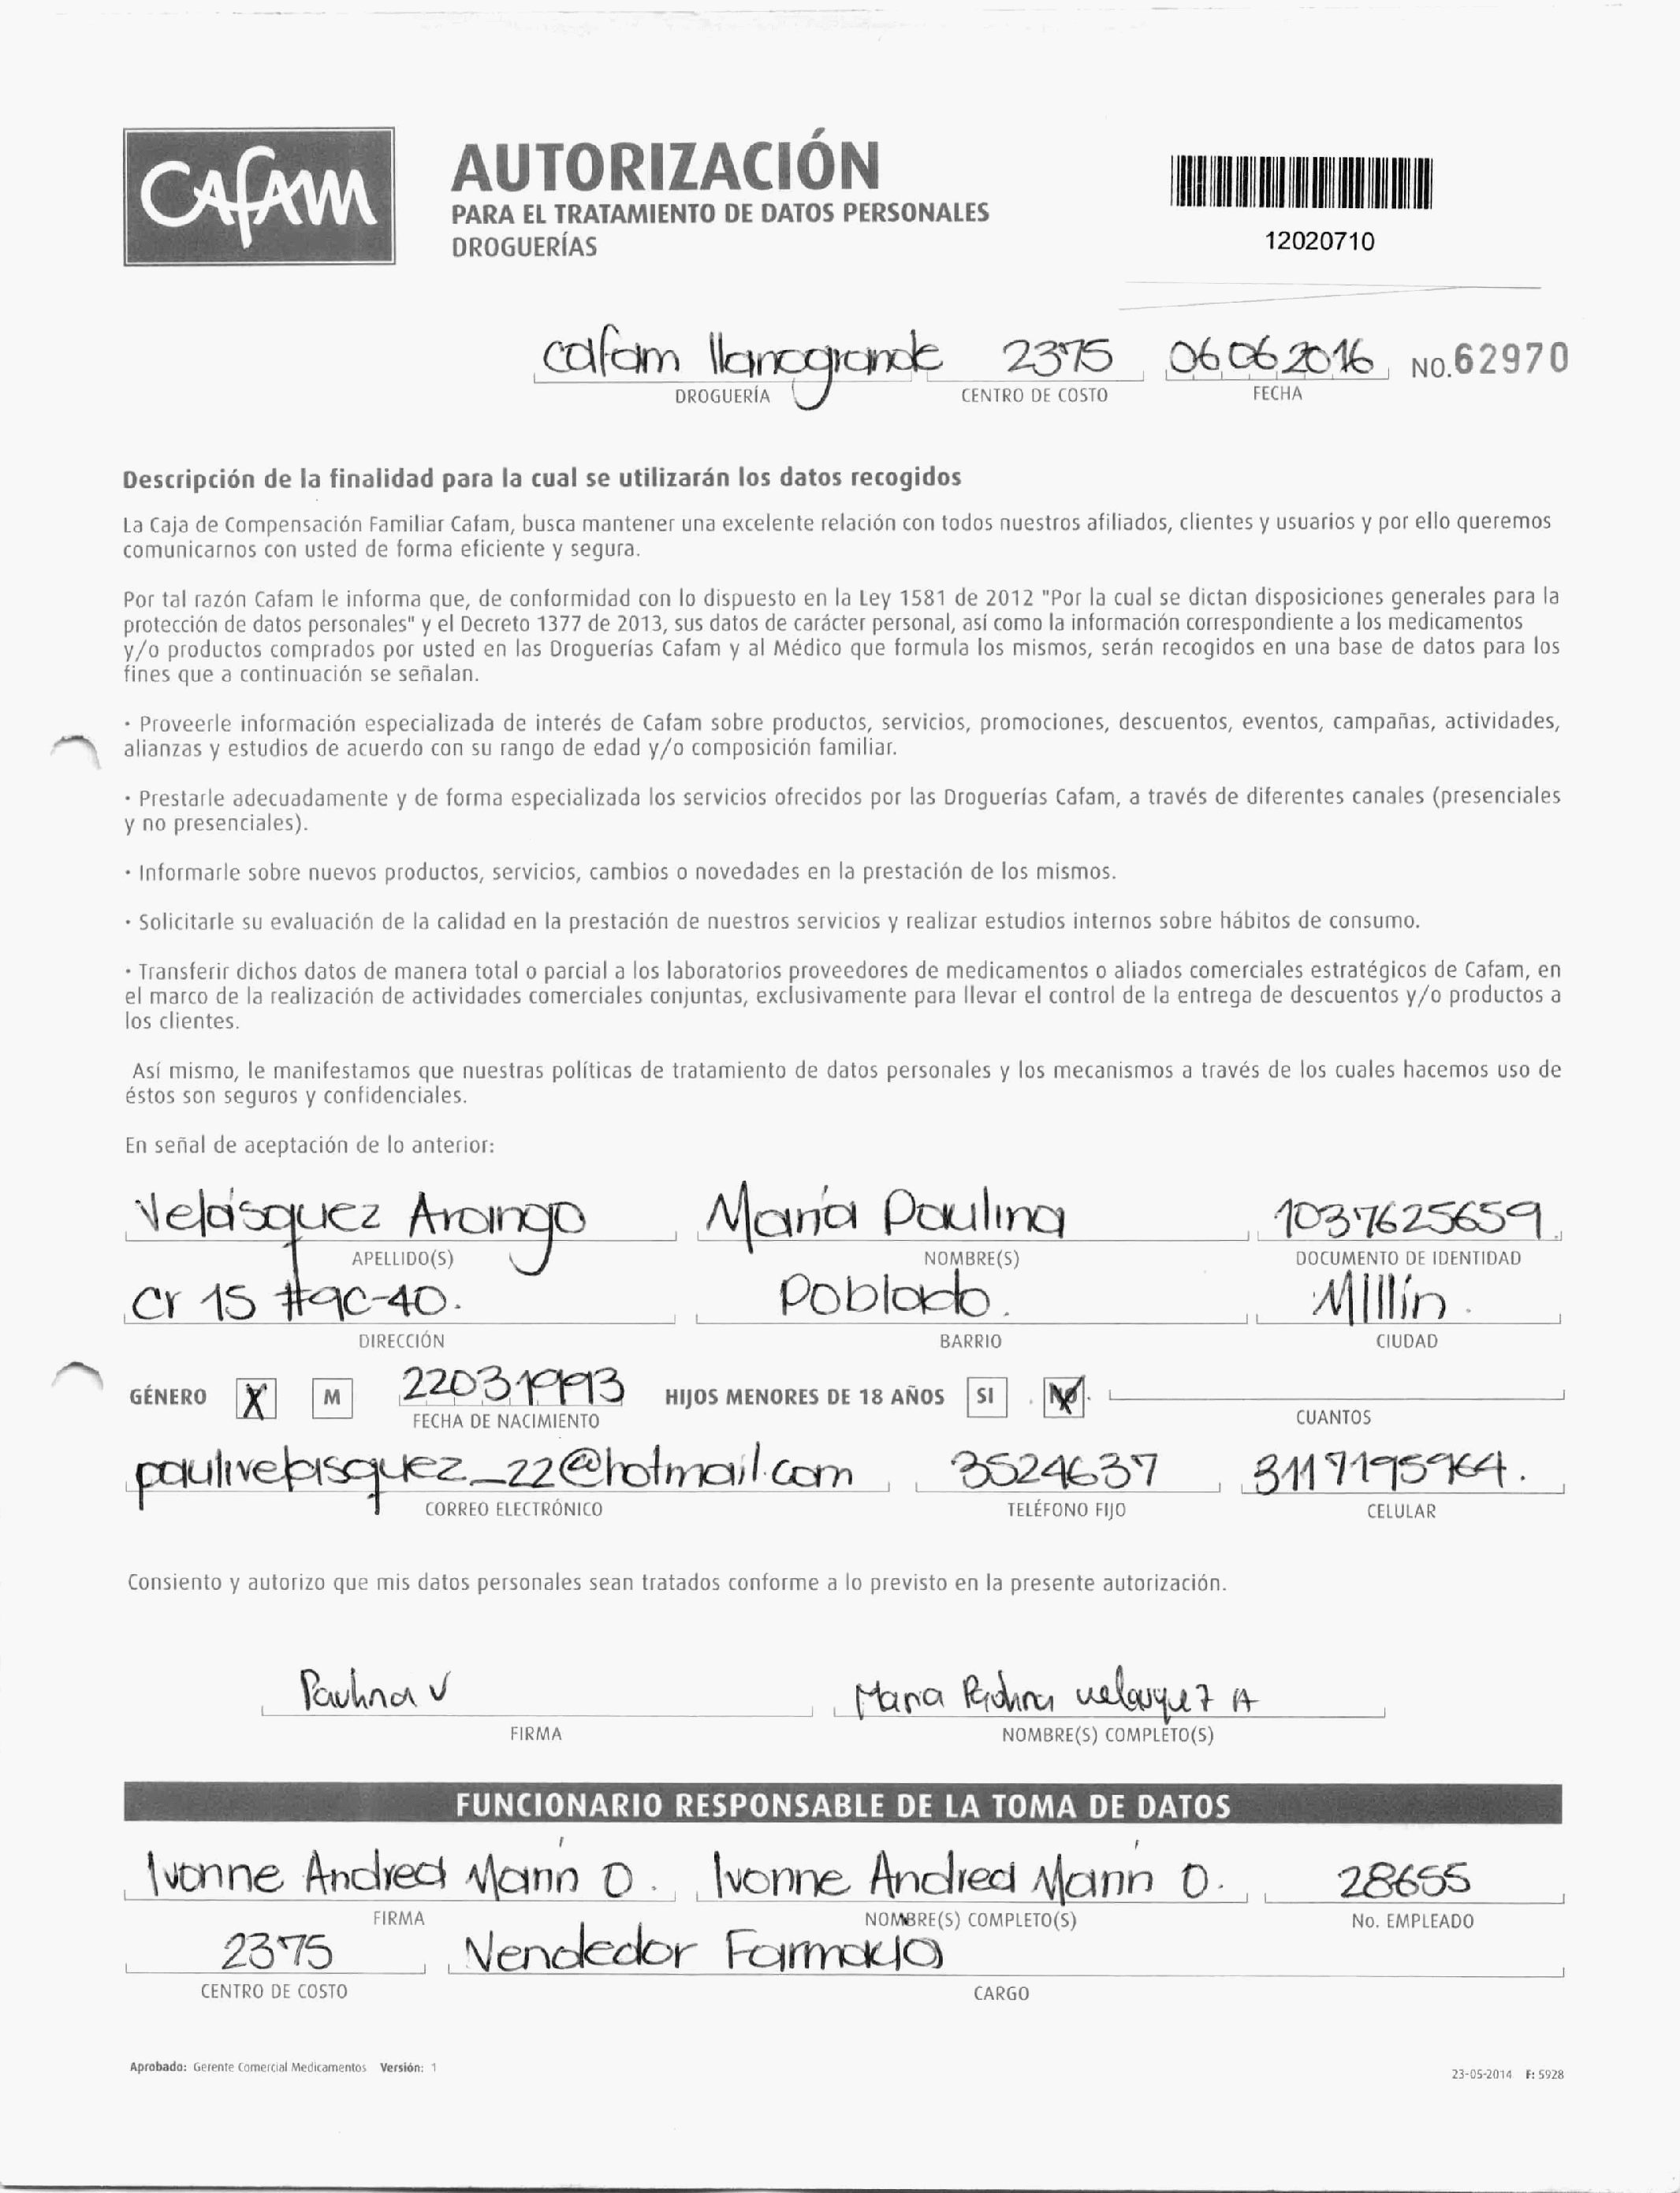 CAFAM
AUTORIZACIÓN
PARA EL TRATAMIENTO DE DATOS PERSONALES
DROGUERÍAS
12020710
cafam llanogrande 2375 06 06 2016 NO. 62970
DROGUERÍA CENTRO DE COSTO FECHA
Descripción de la finalidad para la cual se utilizarán los datos recogidos
La Caja de Compensación Familiar Cafam, busca mantener una excelente relación con todos nuestros afiliados, clientes y usuarios y por ello queremos
comunicarnos con usted de forma eficiente y segura.
Por tal razón Cafam le informa que, de conformidad con lo dispuesto en la Ley 1581 de 2012 "Por la cual se dictan disposiciones generales para la
protección de datos personales" y el Decreto 1377 de 2013, sus datos de carácter personal, así como la información correspondiente a los medicamentos
y/o productos comprados por usted en las Droguerías Cafam y al Médico que formula los mismos, serán recogidos en una base de datos para los
fines que a continuación se señalan.
· Proveerle información especializada de interés de Cafam sobre productos, servicios, promociones, descuentos, eventos, campañas, actividades,
alianzas y estudios de acuerdo con su rango de edad y/o composición familiar.
· Prestarle adecuadamente y de forma especializada los servicios ofrecidos por las Droguerías Cafam, a través de diferentes canales (presenciales
y no presenciales).
· Informarle sobre nuevos productos, servicios, cambios o novedades en la prestación de los mismos.
· Solicitarle su evaluación de la calidad en la prestación de nuestros servicios y realizar estudios internos sobre hábitos de consumo.
· Transferir dichos datos de manera total o parcial a los laboratorios proveedores de medicamentos o aliados comerciales estratégicos de Cafam, en
el marco de la realización de actividades comerciales conjuntas, exclusivamente para llevar el control de la entrega de descuentos y/o productos a
los clientes.
Así mismo, le manifestamos que nuestras políticas de tratamiento de datos personales y los mecanismos a través de los cuales hacemos uso de
éstos son seguros y confidenciales.
En señal de aceptación de lo anterior:
Velásquez Arango María Paulina 1037625659.
APELLIDO(S) NOMBRE(S) DOCUMENTO DE IDENTIDAD
Cr 15 #9C-40. Poblado. Mllín.
DIRECCIÓN BARRIO CIUDAD
GÉNERO X M 22031993 HIJOS MENORES DE 18 AÑOS SI NO
FECHA DE NACIMIENTO CUANTOS
paulivelasquez_22@hotmail.com 3524637 3117195964.
CORREO ELECTRÓNICO TELÉFONO FIJO CELULAR
Consiento y autorizo que mis datos personales sean tratados conforme a lo previsto en la presente autorización.
Paulina V Maria Paulina velasquez A
FIRMA NOMBRE(S) COMPLETO(S)
FUNCIONARIO RESPONSABLE DE LA TOMA DE DATOS
Ivonne Andrea Marín O. Ivonne Andrea Marín O. 28655
FIRMA NOMBRE(S) COMPLETO(S) No. EMPLEADO
2375 Vendedor Farmacia
CENTRO DE COSTO CARGO
Aprobado: Gerente Comercial Medicamentos Versión: 1
23-05-2014 F: 5928